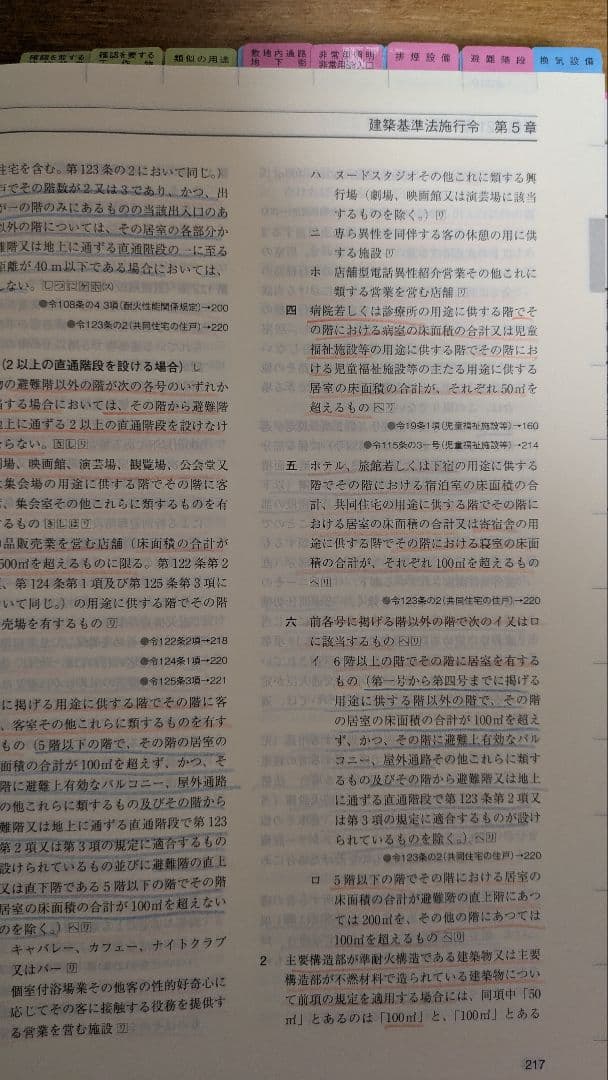 確認を要する
確認を要する
類似の用途
敷地内通路
地下街
非常用照明
非常用進入口
排煙設備
避難階段
換気設備
建築基準法施行令 第5章
住宅を含む。第123条の2において同じ。)
戸でその階数が2又は3であり、かつ、出
が一の階のみにあるものの当該出入口のあ
以外の階については、その居室の各部分か
難階又は地上に通ずる直通階段の一に至る
距離が40m以下である場合においては、
しない。
●令108条の4 3項(耐火性能関係規定)→200
●令123条の2(共同住宅の住戸)→220
(2以上の直通階段を設ける場合)
物の避難階以外の階が次の各号のいずれか
当する場合においては、その階から避難階
地上に通ずる2以上の直通階段を設けなけ
らない。
劇場、映画館、演芸場、観覧場、公会堂又
は集会場の用途に供する階でその階に客
、集会室その他これらに類するものを有
するもの
品販売業を営む店舗(床面積の合計が
500㎡を超えるものに限る。第122条第2
、第124条第1項及び第125条第3項に
いて同じ。)の用途に供する階でその階
売場を有するもの
●令122条2項→218
●令124条1項→220
●令125条3項→221
に掲げる用途に供する階でその階に客
、客室その他これらに類するものを有す
もの(5階以下の階で、その階の居室の
面積の合計が100㎡を超えず、かつ、そ
階に避難上有効なバルコニー、屋外通路
の他これらに類するもの及びその階から
難階又は地上に通ずる直通階段で第123
第2項又は第3項の規定に適合するもの
設けられているもの並びに避難階の直上
又は直下階である5階以下の階でその階
居室の床面積の合計が100㎡を超えない
のを除く。)
キャバレー、カフェー、ナイトクラブ
又はバー
個室付浴場業その他客の性的好奇心に
応じてその客に接触する役務を提供す
る営業を営む施設
ハ ヌードスタジオその他これに類する興
行場(劇場、映画館又は演芸場に該当
するものを除く。)
ニ 専ら異性を同伴する客の休憩の用に供
する施設
ホ 店舗型電話異性紹介営業その他これに
類する営業を営む店舗
四 病院若しくは診療所の用途に供する階でそ
の階における病室の床面積の合計又は児童
福祉施設等の用途に供する階でその階にお
ける児童福祉施設等の主たる用途に供する
居室の床面積の合計が、それぞれ50㎡を
超えるもの
●令19条1項(児童福祉施設等)→160
●令115条の3一号(児童福祉施設等)→214
五 ホテル、旅館若しくは下宿の用途に供する
階でその階における宿泊室の床面積の合
計、共同住宅の用途に供する階でその階に
おける居室の床面積の合計又は寄宿舎の用
途に供する階でその階における寝室の床面
積の合計が、それぞれ100㎡を超えるもの
●令123条の2(共同住宅の住戸)→220
六 前各号に掲げる階以外の階で次のイ又はロ
に該当するもの
イ 6階以上の階でその階に居室を有する
もの(第一号から第四号までに掲げる
用途に供する階以外の階で、その階
の居室の床面積の合計が100㎡を超え
ず、かつ、その階に避難上有効なバル
コニー、屋外通路その他これらに類す
るもの及びその階から避難階又は地上
に通ずる直通階段で第123条第2項又
は第3項の規定に適合するものが設け
られているものを除く。)
●令123条の2(共同住宅の住戸)→220
ロ 5階以下の階でその階における居室の
床面積の合計が避難階の直上階にあつ
ては200㎡を、その他の階にあつては
100㎡を超えるもの
2 主要構造部が準耐火構造である建築物又は主要
構造部が不燃材料で造られている建築物につい
て前項の規定を適用する場合には、同項中「50
㎡」とあるのは「100㎡」と、「100㎡」とある
217